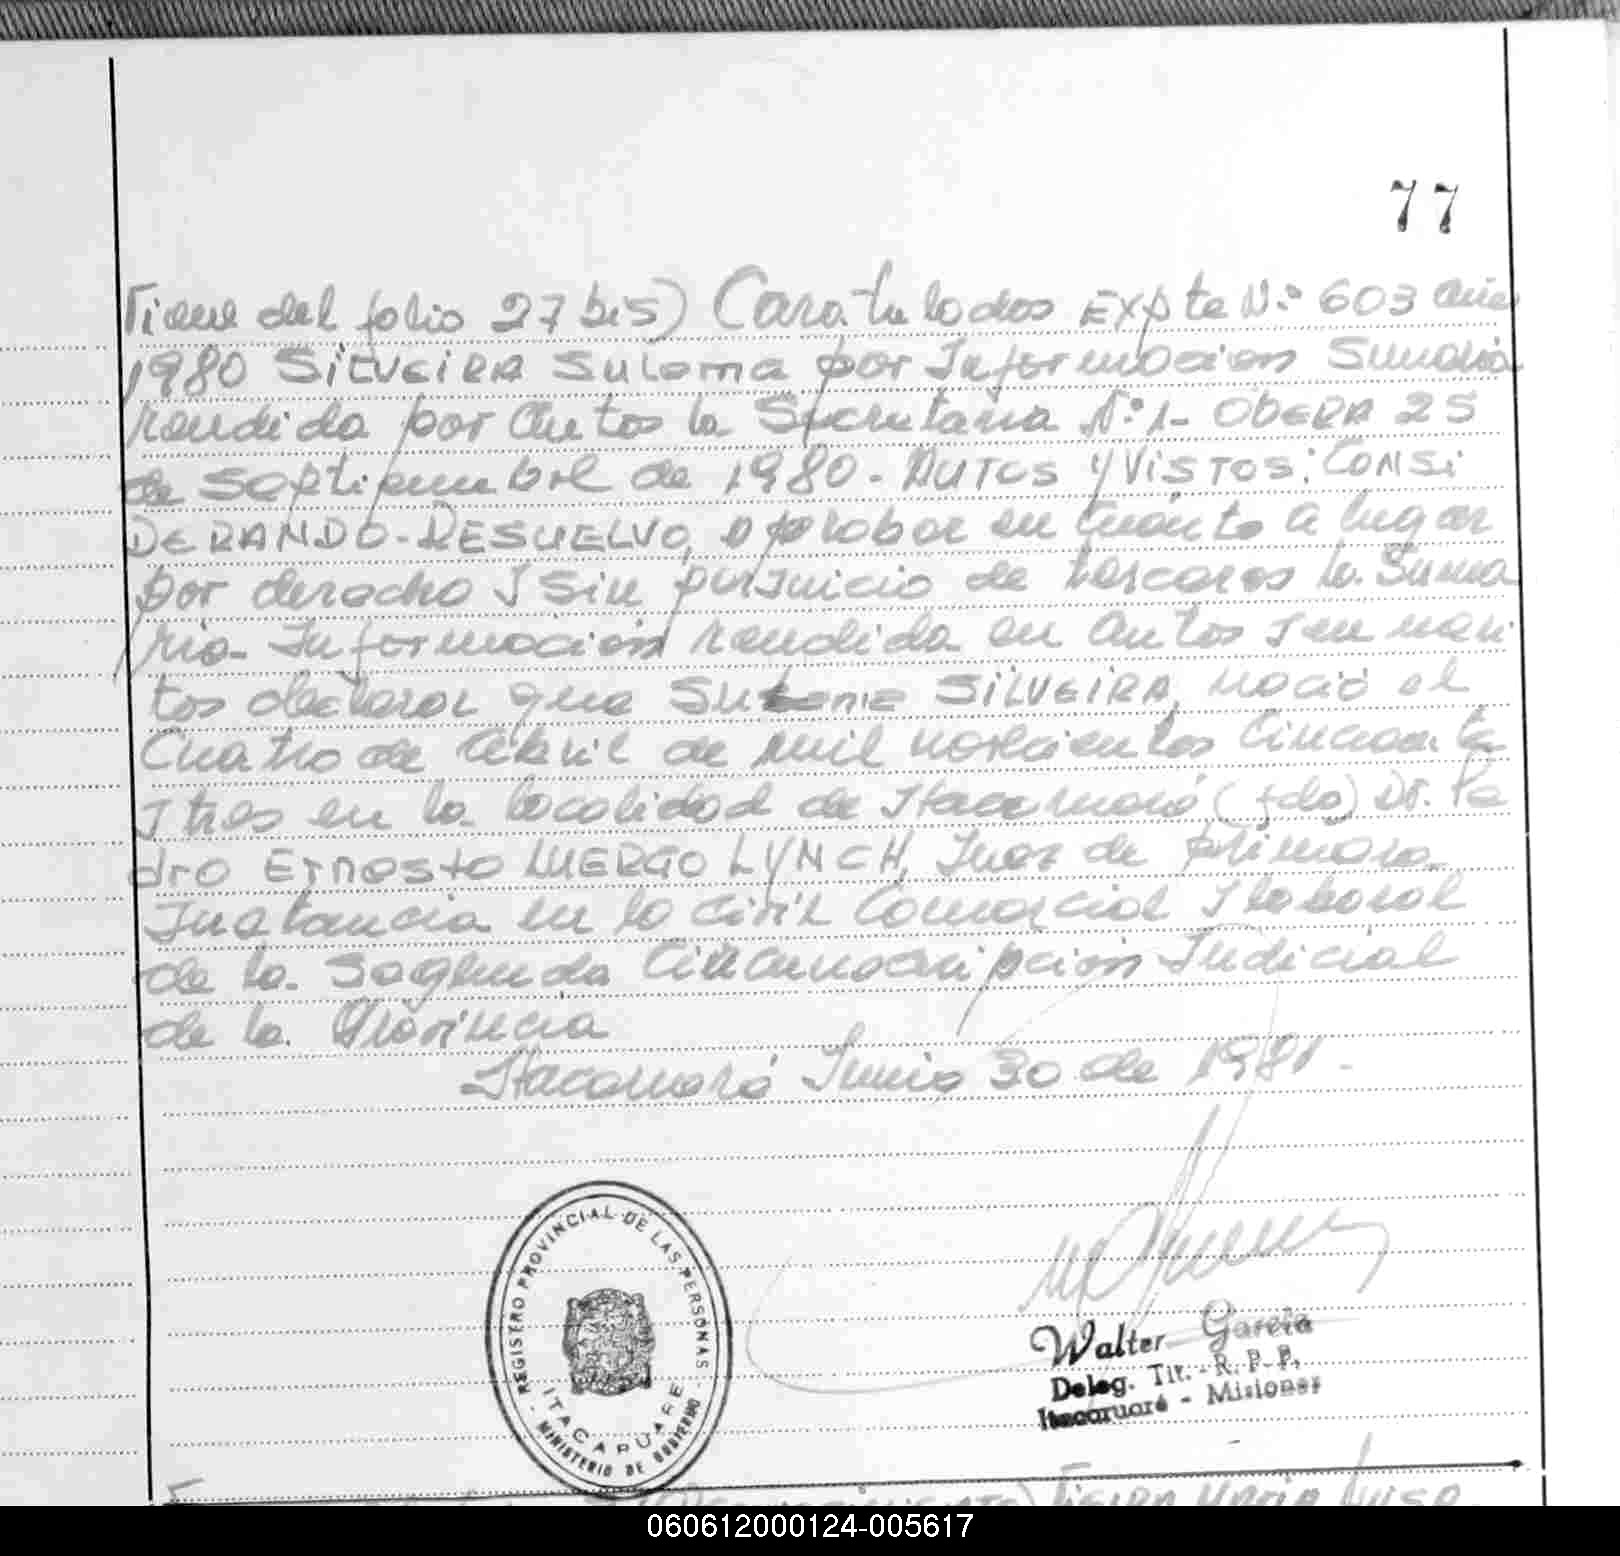 77
Viene del folio 27 bis) Caratulados EXpte N.º 603 año
1980 SILVEIRA Sulema por Informacion Sumaria
rendida por Autos la Secretaria N.º 1- OBERA 25
de Septiembre de 1980. AUTOS Y VISTOS: CONSI
DERANDO-RESUELVO, aprobar en cuánto a lugar
por derecho y Sin perjuicio de terceros la Suma
ria Información rendida en Autos y en meri
tos declarar que SILVEIRA, nació el
Cuatro de Abril de mil novecientos Cincuenta
y tres en la localidad de Itacaruaré (fdo) Dr. Pe
dro Ernesto LYNCH, Juez de primera
Instancia en lo Civil Comercial y laboral
de la Segunda Circunscripción Judicial
de la Provincia
Itacaruaré Junio 30 de 1981.
REGISTRO PROVINCIAL DE LAS PERSONAS
ITACARUARE
- MINISTERIO DE GOBIERNO -
Walter García
Deleg. Tit. - R. P. P.
Itacaruaré - Misiones
060612000124-005617